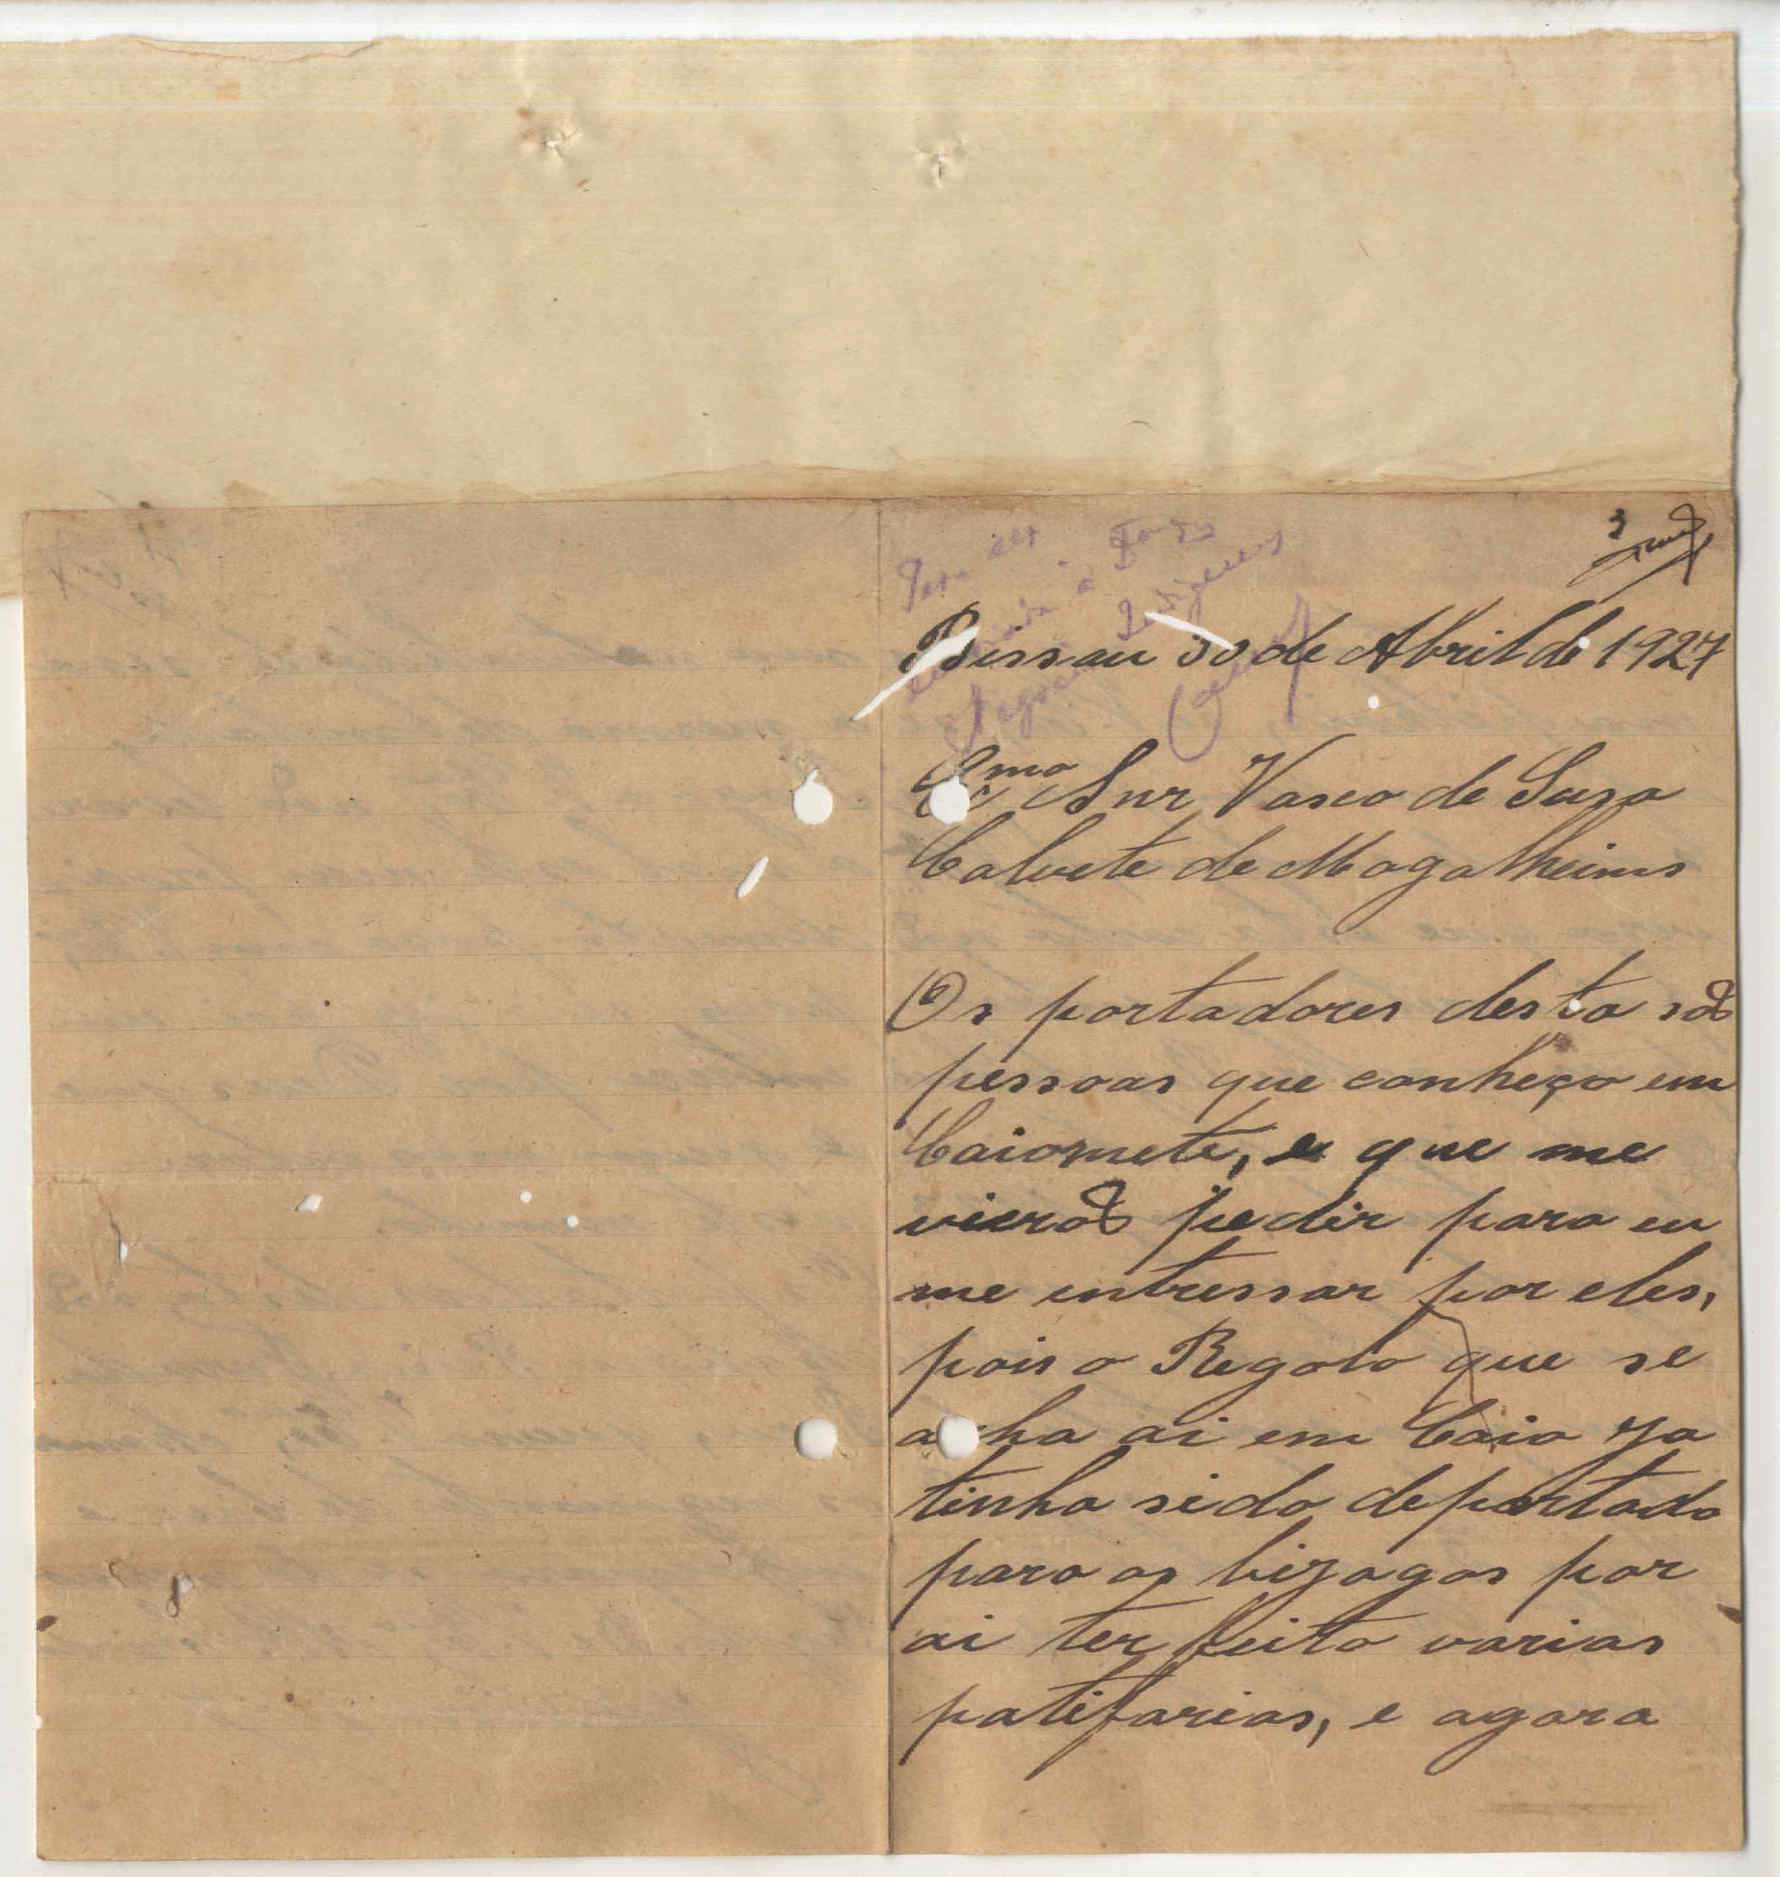 3
Para ser
enviada á Rep
Negocios Indigenas
Bissau 30 de Abril de 1927
Exmo Snr Vasco de Suza
Calvete de Magalheins
Os portadores desta são
pessoas que conheço em
Caiomete, e que me
vierão pedir para eu
me entressar por eles,
pois o Regolo que se
acha ai em Caio ja
tinha sido deportado
para os bizagos por
ai ter feito varias
patifarias, e agora